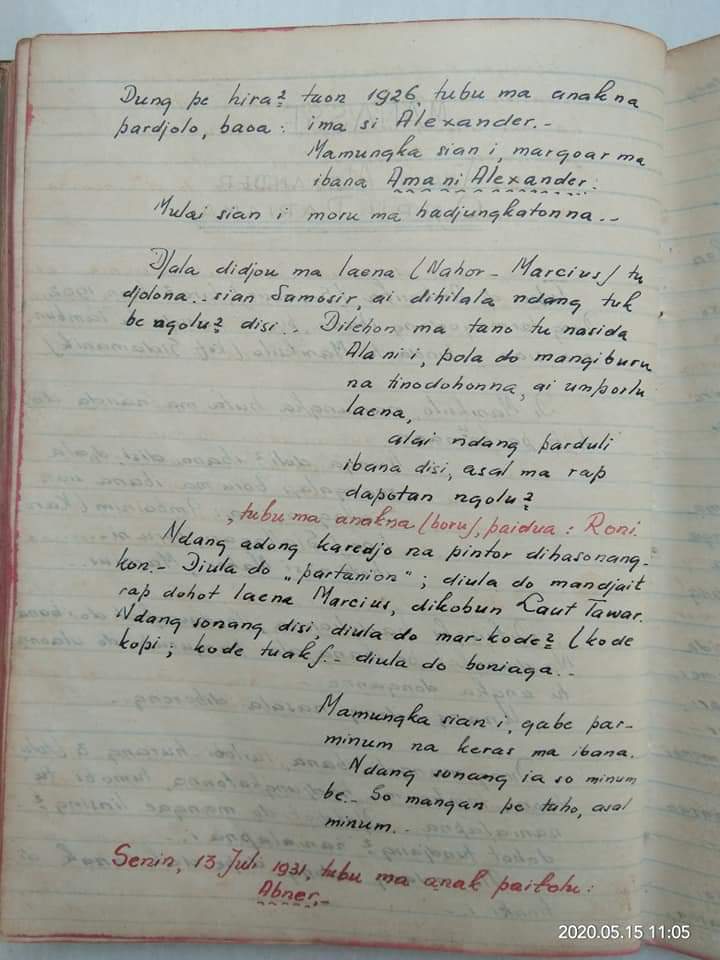 Dung pe hira² taon 1926, tubu ma anakna
pardjolo, baoa: ima si Alexander.-
Mamungka sian i, margoar ma
ibana Amani Alexander:
Mulai sian i moru ma hadjungkatonna..
Djala didjou ma laena (Nahor - Marcius) tu
djolona.. sian Samosir, ai dihilala ndang tuk
be ngolu² disi.. Dilehon ma tano tu nasida
Alani i, pola do mangiburu
na tinodohonna, ai umporlu
laena,
alai ndang parduli
ibana disi, asal ma rap
dapotan ngolu²
, tubu ma anakna (boru), paidua : Roni.
Ndang adong karedjo na pintor dihasonang-
kon.- Diula do „partanion"; diula do mandjait
rap dohot laena Marcius, dikobun Laut Tawar.
Ndang sonang disi, diula do mar-kode² (kode
kopi; kode tuak).- diula do boniaga..
Mamungka sian i, gabe par-
minum na keras ma ibana.
Ndang sonang ia so minum
be.- So mangan pe taho, asal
minum..
Senin, 13 Juli 1931, tubu ma anak paitolu:
Abner,-
2020.05.15 11:05